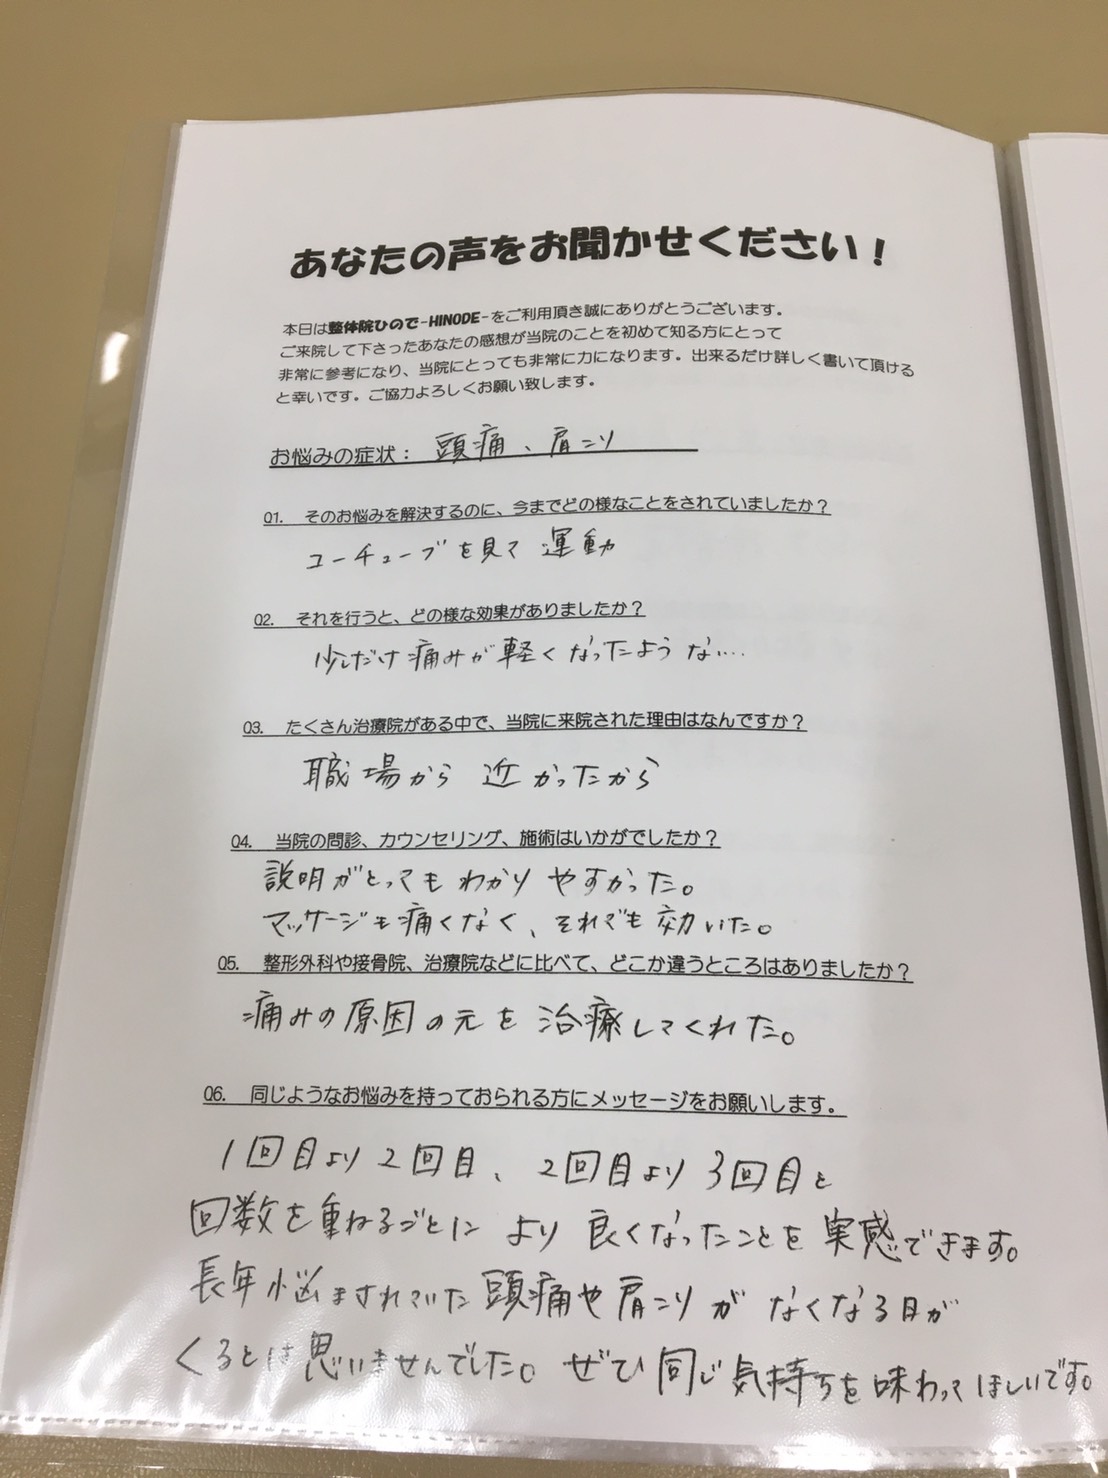 あなたの声をお聞かせください！
本日は整体院ひので-HINODE-をご利用頂き誠にありがとうございます。
ご来院して下さったあなたの感想が当院のことを初めて知る方にとって
非常に参考になり、当院にとっても非常に力になります。出来るだけ詳しく書いて頂ける
と幸いです。ご協力よろしくお願い致します。
お悩みの症状： 頭痛、肩こり
Q1. そのお悩みを解決するのに、今までどの様なことをされていましたか？
ユーチューブを見て 運動
Q2. それを行うと、どの様な効果がありましたか？
少しだけ痛みが軽くなったような…
Q3. たくさん治療院がある中で、当院に来院された理由はなんですか？
職場から近かったから
Q4. 当院の問診、カウンセリング、施術はいかがでしたか？
説明がとってもわかりやすかった。
マッサージも痛くなく、それでも効いた。
Q5. 整形外科や接骨院、治療院などに比べて、どこか違うところはありましたか？
痛みの原因の元を治療してくれた。
Q6. 同じようなお悩みを持っておられる方にメッセージをお願いします。
1回目より2回目、2回目より3回目と
回数を重ねるごとに より良くなったことを実感できます。
長年悩まされていた頭痛や肩こりがなくなる日が
くるとは思いませんでした。ぜひ同じ気持ちを味わってほしいです。